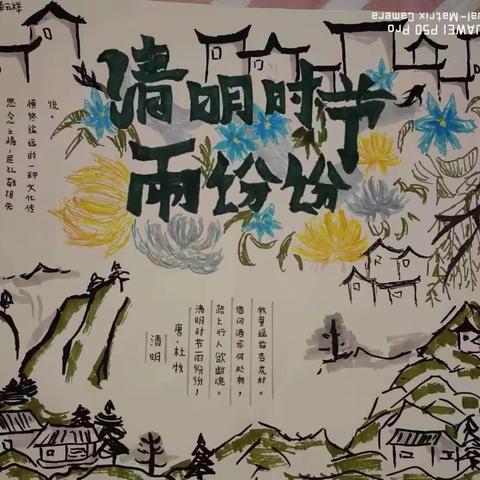 清明时节
雨纷纷
思念之情,是礼敬祖先
慎终追远的一种文化传
统。
清明
唐·杜牧
清明时节雨纷纷,
路上行人欲断魂。
借问酒家何处有,
牧童遥指杏花村。
UAWEI P50 Pro
ual-Matrix Camera